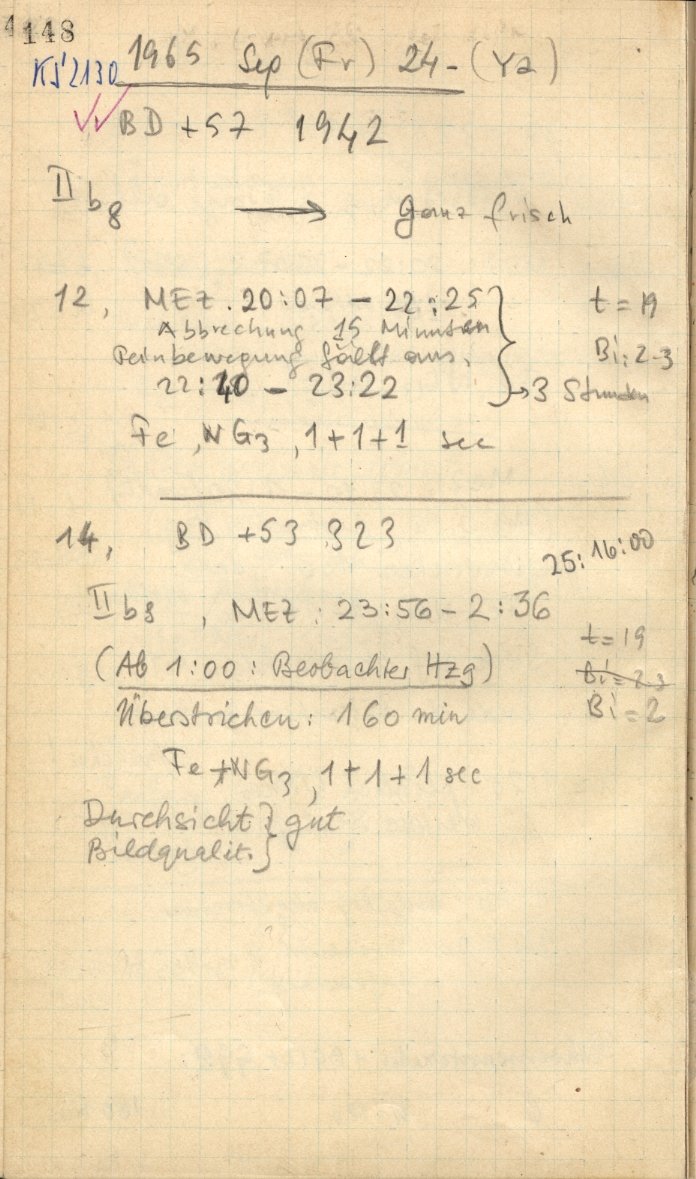 148
KS 2130 1965 Sep (Fr) 24- (Ya)
BD +57 1942
II b8 → ganz frisch
12, MEZ. 20:07 - 22:25 t = 19
Abbrechung 15 Minuten
Feinbewegung fällt aus. Bi: 2-3
22:40 - 23:22 → 3 Stunden
Fe, NG3, 1+1+1 sec
14, BD +53 323
25: 16:00
II b8, MEZ: 23:56 - 2:36
t = 19
(Ab 1:00: Beobachter Hzg) Bi = 2-3
Überstrichen: 160 min Bi = 2
Fe + NG3, 1+1+1 sec
Durchsicht } gut
Bildqualit. }